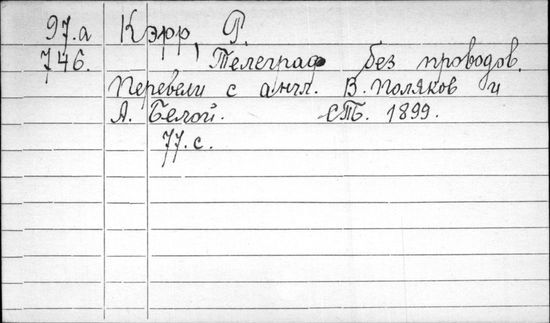 97.а Кэрр, Р.
746. Телеграф без проводов.
Перевели с англ. В. Поляков и
А. Белой. СПБ. 1899.
77.с.